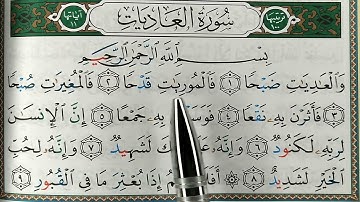 ترتيبها ١٠٠ سُورَةُ العَادِيَاتِ آياتها ١١
بِسْمِ اللَّهِ الرَّحْمَٰنِ الرَّحِيمِ
وَالْعَادِيَاتِ ضَبْحًا ۝١ فَالْمُورِيَاتِ قَدْحًا ۝٢ فَالْمُغِيرَاتِ صُبْحًا
۝٣ فَأَثَرْنَ بِهِ نَقْعًا ۝٤ فَوَسَ بِهِ جَمْعًا ۝٥ إِنَّ الْإِنسَانَ
لِرَبِّهِ لَكَنُودٌ ۝٦ وَإِنَّهُ عَ لَشَهِيدٌ ۝٧ وَإِنَّهُ لِحُبِّ
الْخَيْرِ لَشَدِيدٌ ۝٨ إِذَا بُعْثِرَ مَا فِي الْقُبُورِ ۝٩